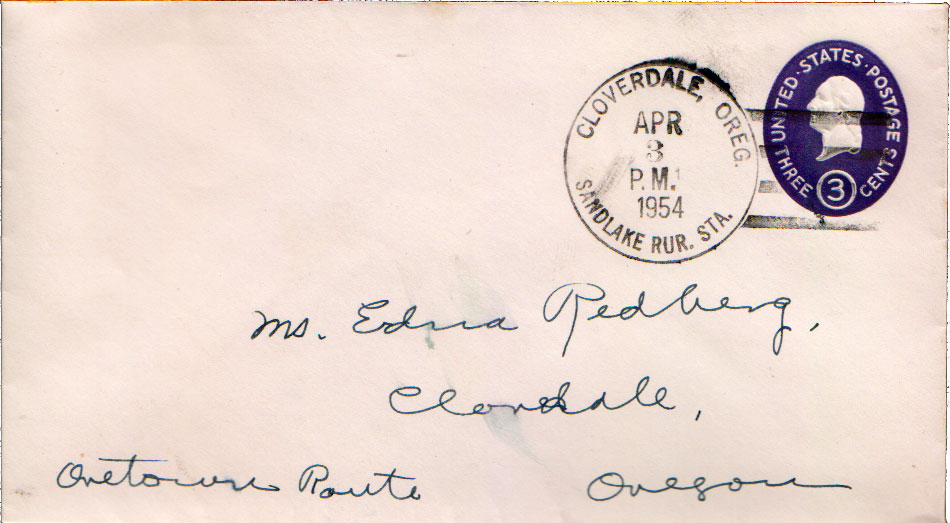 UNITED · STATES · POSTAGE
THREE 3 CENTS
CLOVERDALE, OREG.
APR
3
P.M.
1954
SANDLAKE RUR. STA.
Ms. Edna Redberg,
Cloverdale,
Oretown Route Oregon